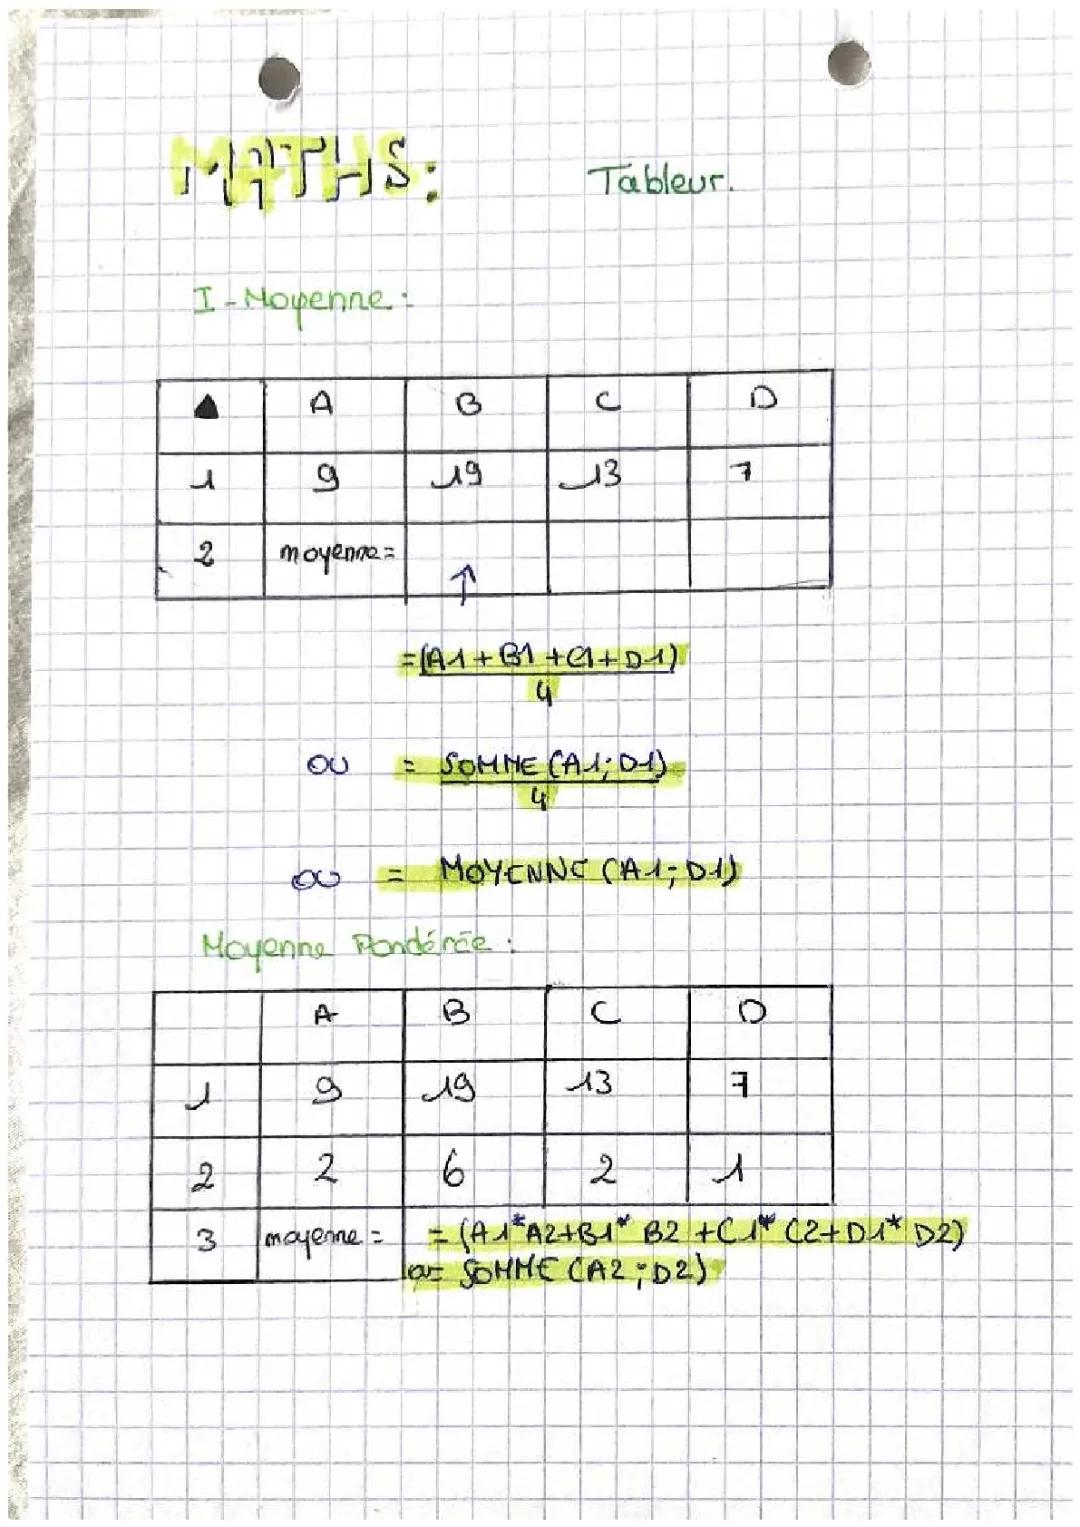 MATHS:
Tableur.
I - Moyenne :
A B C D
1 9 19 13 7
2 moyenne =
=(A1+B1+C1+D1)
4
OU = SOMME (A1;D1)
4
OU = MOYENNE (A1;D1)
Moyenne Pondérée :
A B C D
1 9 19 13 7
2 2 6 2 1
3 moyenne = = (A1*A2+B1*B2+C1*C2+D1*D2)
= SOMME (A2;D2)